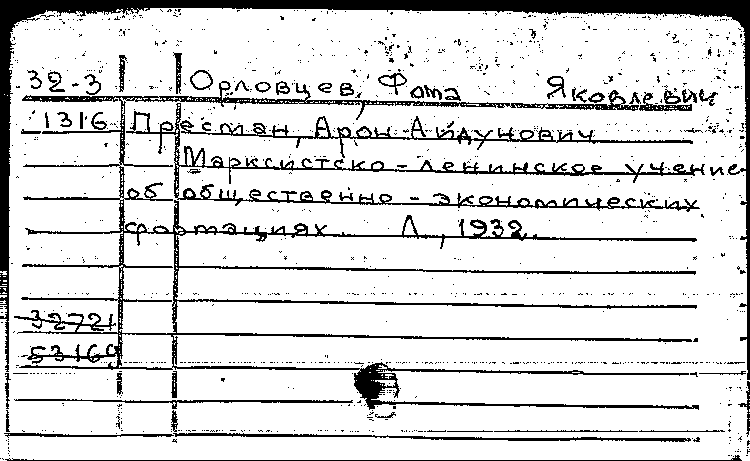 32-3 Орловцев, Фота Яковлевич
1316 Пресман, Арон Айдунович
Марксистско-ленинское учение
об общественно-экономических
формациях. Л., 1932.
32721
53169